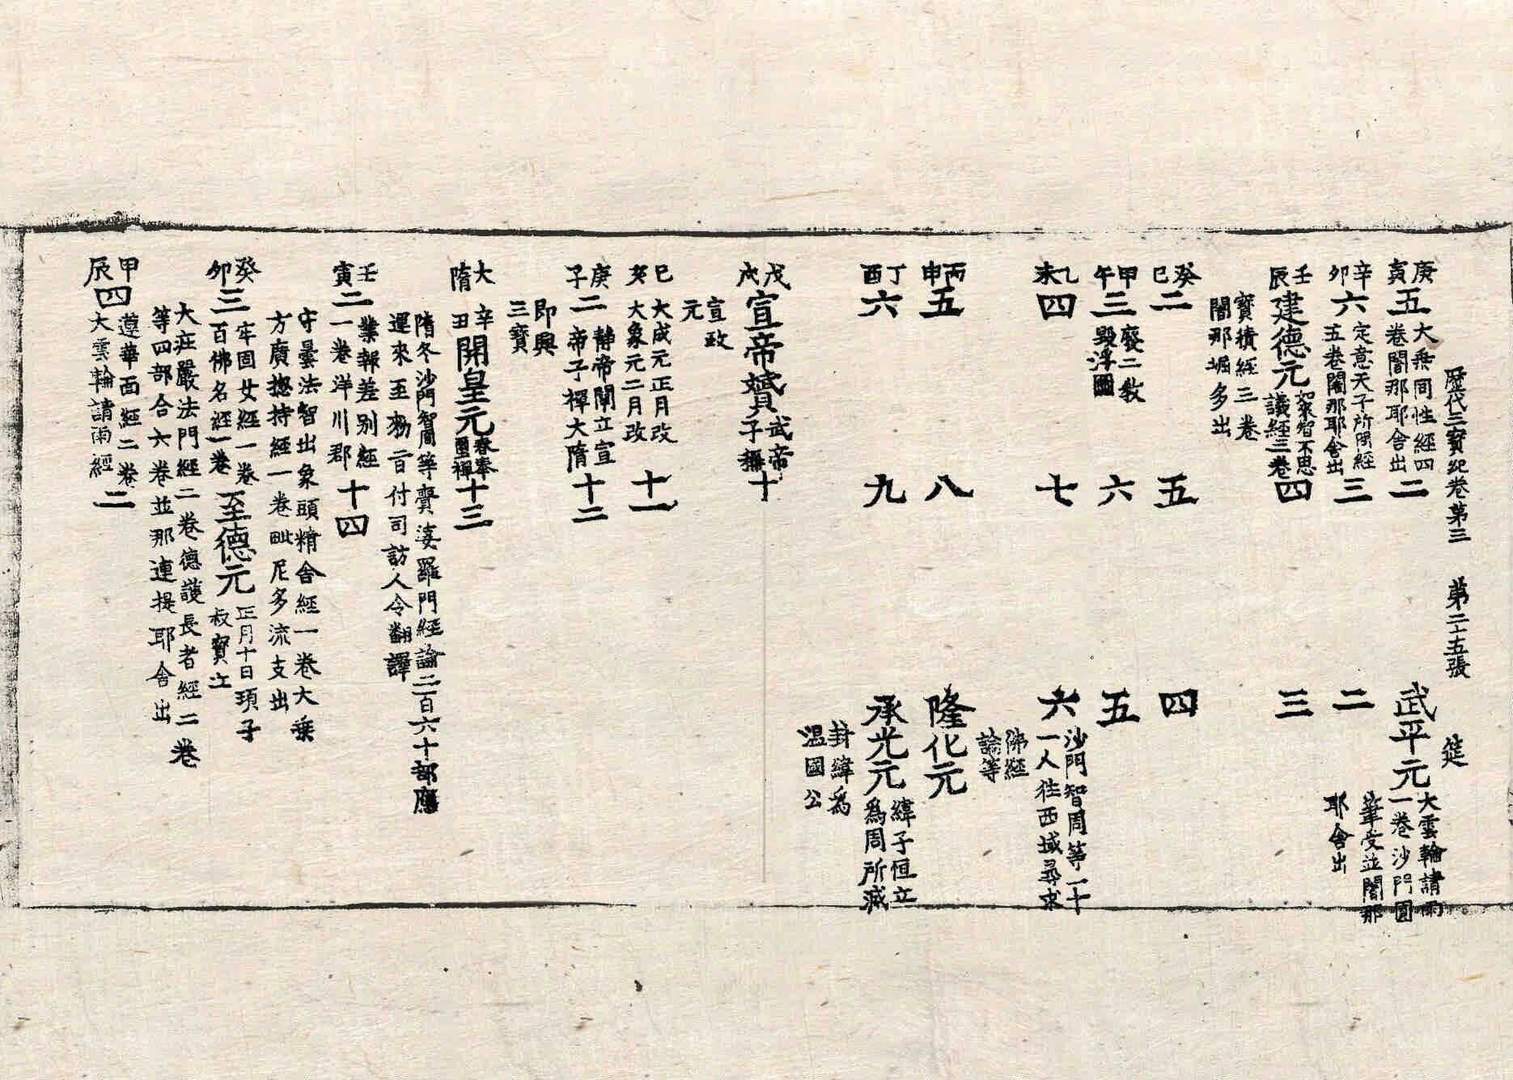 歷代三寶紀卷第三 第二十五張 筵
庚寅 五 大乘同性經四卷闍那耶舍出 二 武平元 大雲輪請雨一卷沙門圓筆受並闍那耶舍出
辛卯 六 定意天子所問經五卷闍那耶舍出 三 二
壬辰 建德元 衆智不思議經三卷 四 三
寶積經三卷
闍那堀多出
癸巳 二 五 四
甲午 三 廢二敎毀浮圖 六 五
乙未 四 七 六 沙門智周等一十一人往西域尋求
佛經
論等
丙申 五 八 隆化元
丁酉 六 九 承光元 緯子恒立爲周所滅
封緯爲
温國公
戊戌 宣帝贇 武帝子攝 十
宣政
元
己亥 大成元正月改大象元二月改 十一
庚子 二 靜帝闡立宣帝子禪大隋 十二
即興
三寶
大隋 辛丑 開皇元 春奉璽禪 十三
隋冬沙門智周等賷婆羅門經論二百六十部應
還來至勑旨付司訪人令翻譯
壬寅 二 業報差別經一卷洋川郡 十四
守曇法智出象頭精舍經一卷大乘
方廣揔持經一卷毗尼多流支出
癸卯 三 牢固女經一卷百佛名經一卷 至德元 正月十日頊子叔寶立
大莊嚴法門經二卷德護長者經二卷
等四部合六卷並那連提耶舍出
甲辰 四 蓮華面經二卷大雲輪請雨經 二